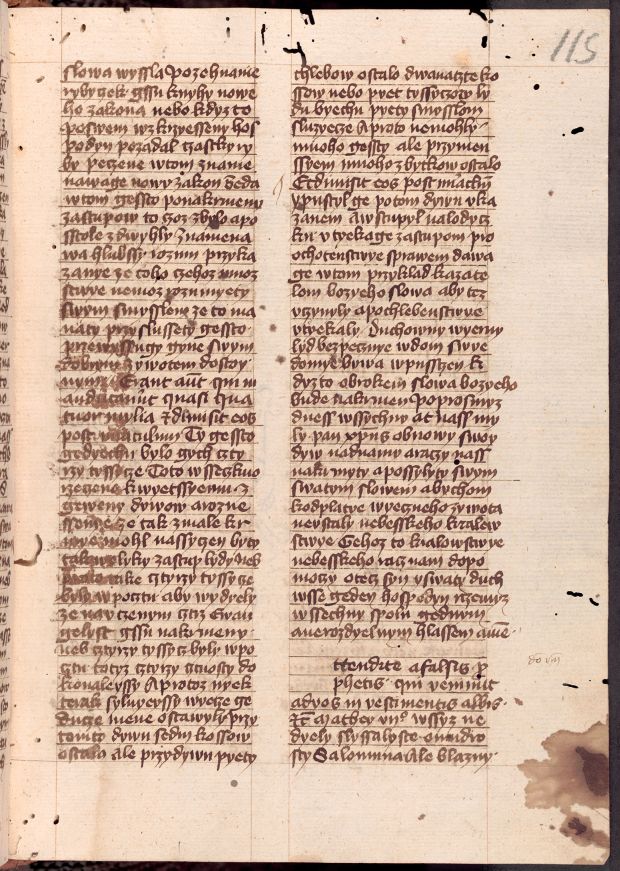 115
slowa wyssla pozehnanie
rybyczek gssu knyhy nowe
ho zakona nebo kdyz to
poswem wzkrzyesseny hos
podyn pozadal czastky ry
by peczene wtom zname
nawage nowy zakon Geda
wtom gessto ponakrmeny
zastupow to czoz zbylo apo
sstole zdwyhly znamena
wa hlubssy rozum przyka
zanye ze toho czehoz mnoz
stwye nemoz rozumyety
swym smysslem ze to ma
naty przyslussety gessto
przewyssugy gyne swym
dobrym zywotem dostoy
nym Erant aut qui m
anducauerunt quasi qua
tuor mylia et dimisit eos
post Ty gessto
gedyechu bylo gych czty
rzy tyssycze Toto wsseczkno
rzeczene kwyetssyemu z
geweny dywow arozne
ssenye ze tak zmale kr
mye mohl nassyczen byty
lyky zastup lydy Neb
take cztyrzy tyssycze
bylo wpocztu aby wydyely
ze nav czenym cztz Ewan
gelyst gssu nakrmeny
neb cztyrzy tyssycz byly wpo
cztu totyz cztyrzy cztnosty do
konaleyssy A protoz nyek
terak sylnyeyssy wyecze ge
ducze mene ostawyly przy
tomto dywu sedm kossow
ostalo ale przydywu pyety
chlebow ostalo dwanadczte ko
ssow nebo pyet tyssyczow ly
du byechu pyety smysslom
sluzyecze A proto nemohly
mnoho gessty ale przymen
ssyem mnoho zbytkow ostalo
Et dimisit eos post
vpustyl ge potom dywu vka
zanem Awstupyl nalodycz
ku vtyekage zastupom pro
ochotenstwye sprawem dawa
ge wtom przyklad kazate
lom bozyeho slowa aby tez
vczynyly apochlebenstwye
vtyekaly Duchowny wyerny
lyd bezpecznye wdom swye
domye bywa wpusstyen k
dyz to obrokem slowa bozyeho
bude nakrmen poprosmyz
dness wssychny at nass my
ly pan xpus obnowy swoy
dyw nadnamy araczy nass
nakrmyty apossylyty swym
swatym slowem abychom
kodplatye wyeczneho zywota
nevstaly nebesskeho kralew
stwye Gehoz to kralowstwye
nebesskeho racz nam dopo
mocy otecz syn yswaty duch
wsse geden hospodyn rzcemyz
wssechny spolu gednym
anerozdyelnym hlassem ame
ttendite a falsis p
phetis qui veniunt
ad vos in vestimentis albis
Et Mathey vii wssyz ne
dyely slyssalyste omudro
sty Salomuna Ale blazny